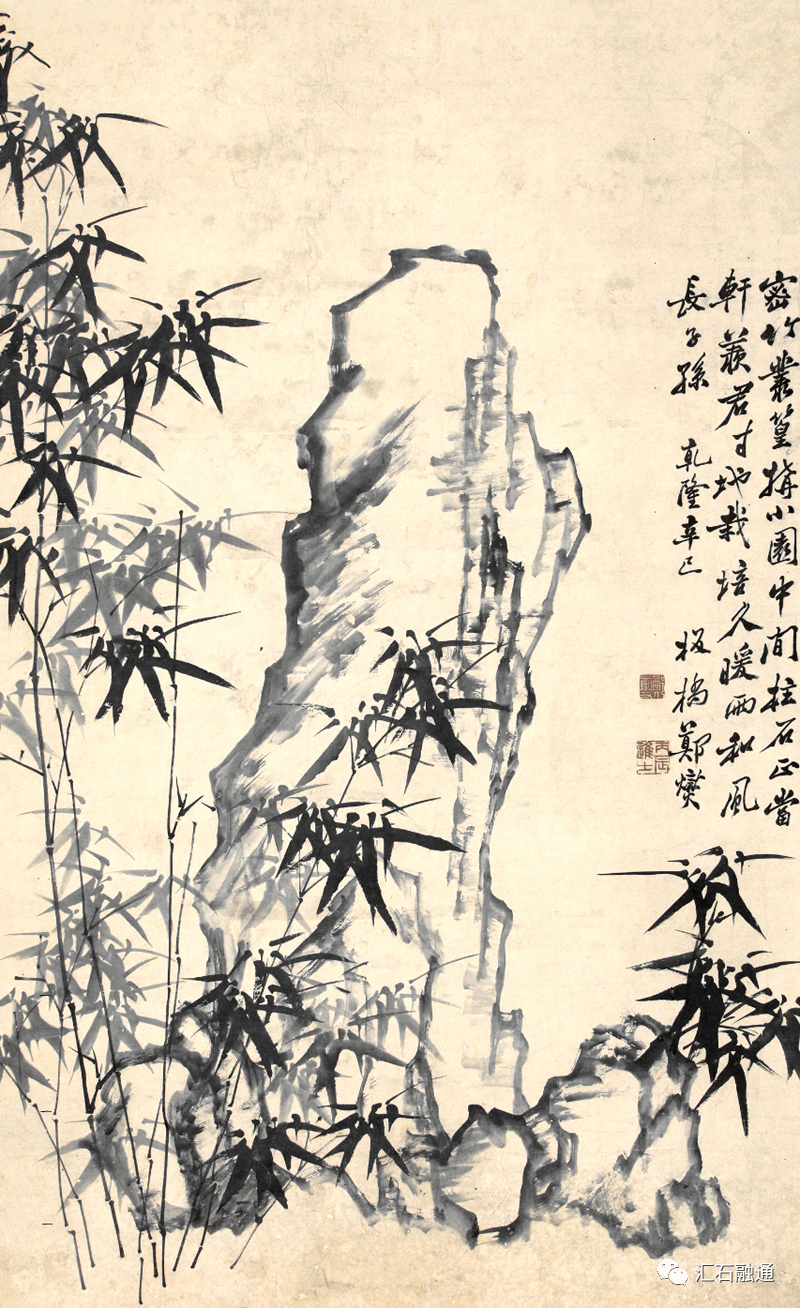 密竹叢篁搆小園中間柱石正當
軒羨君寸地栽培久暖雨和風
長子孫 乾隆辛巳 板橋鄭燮
丙辰進士
汇石融通